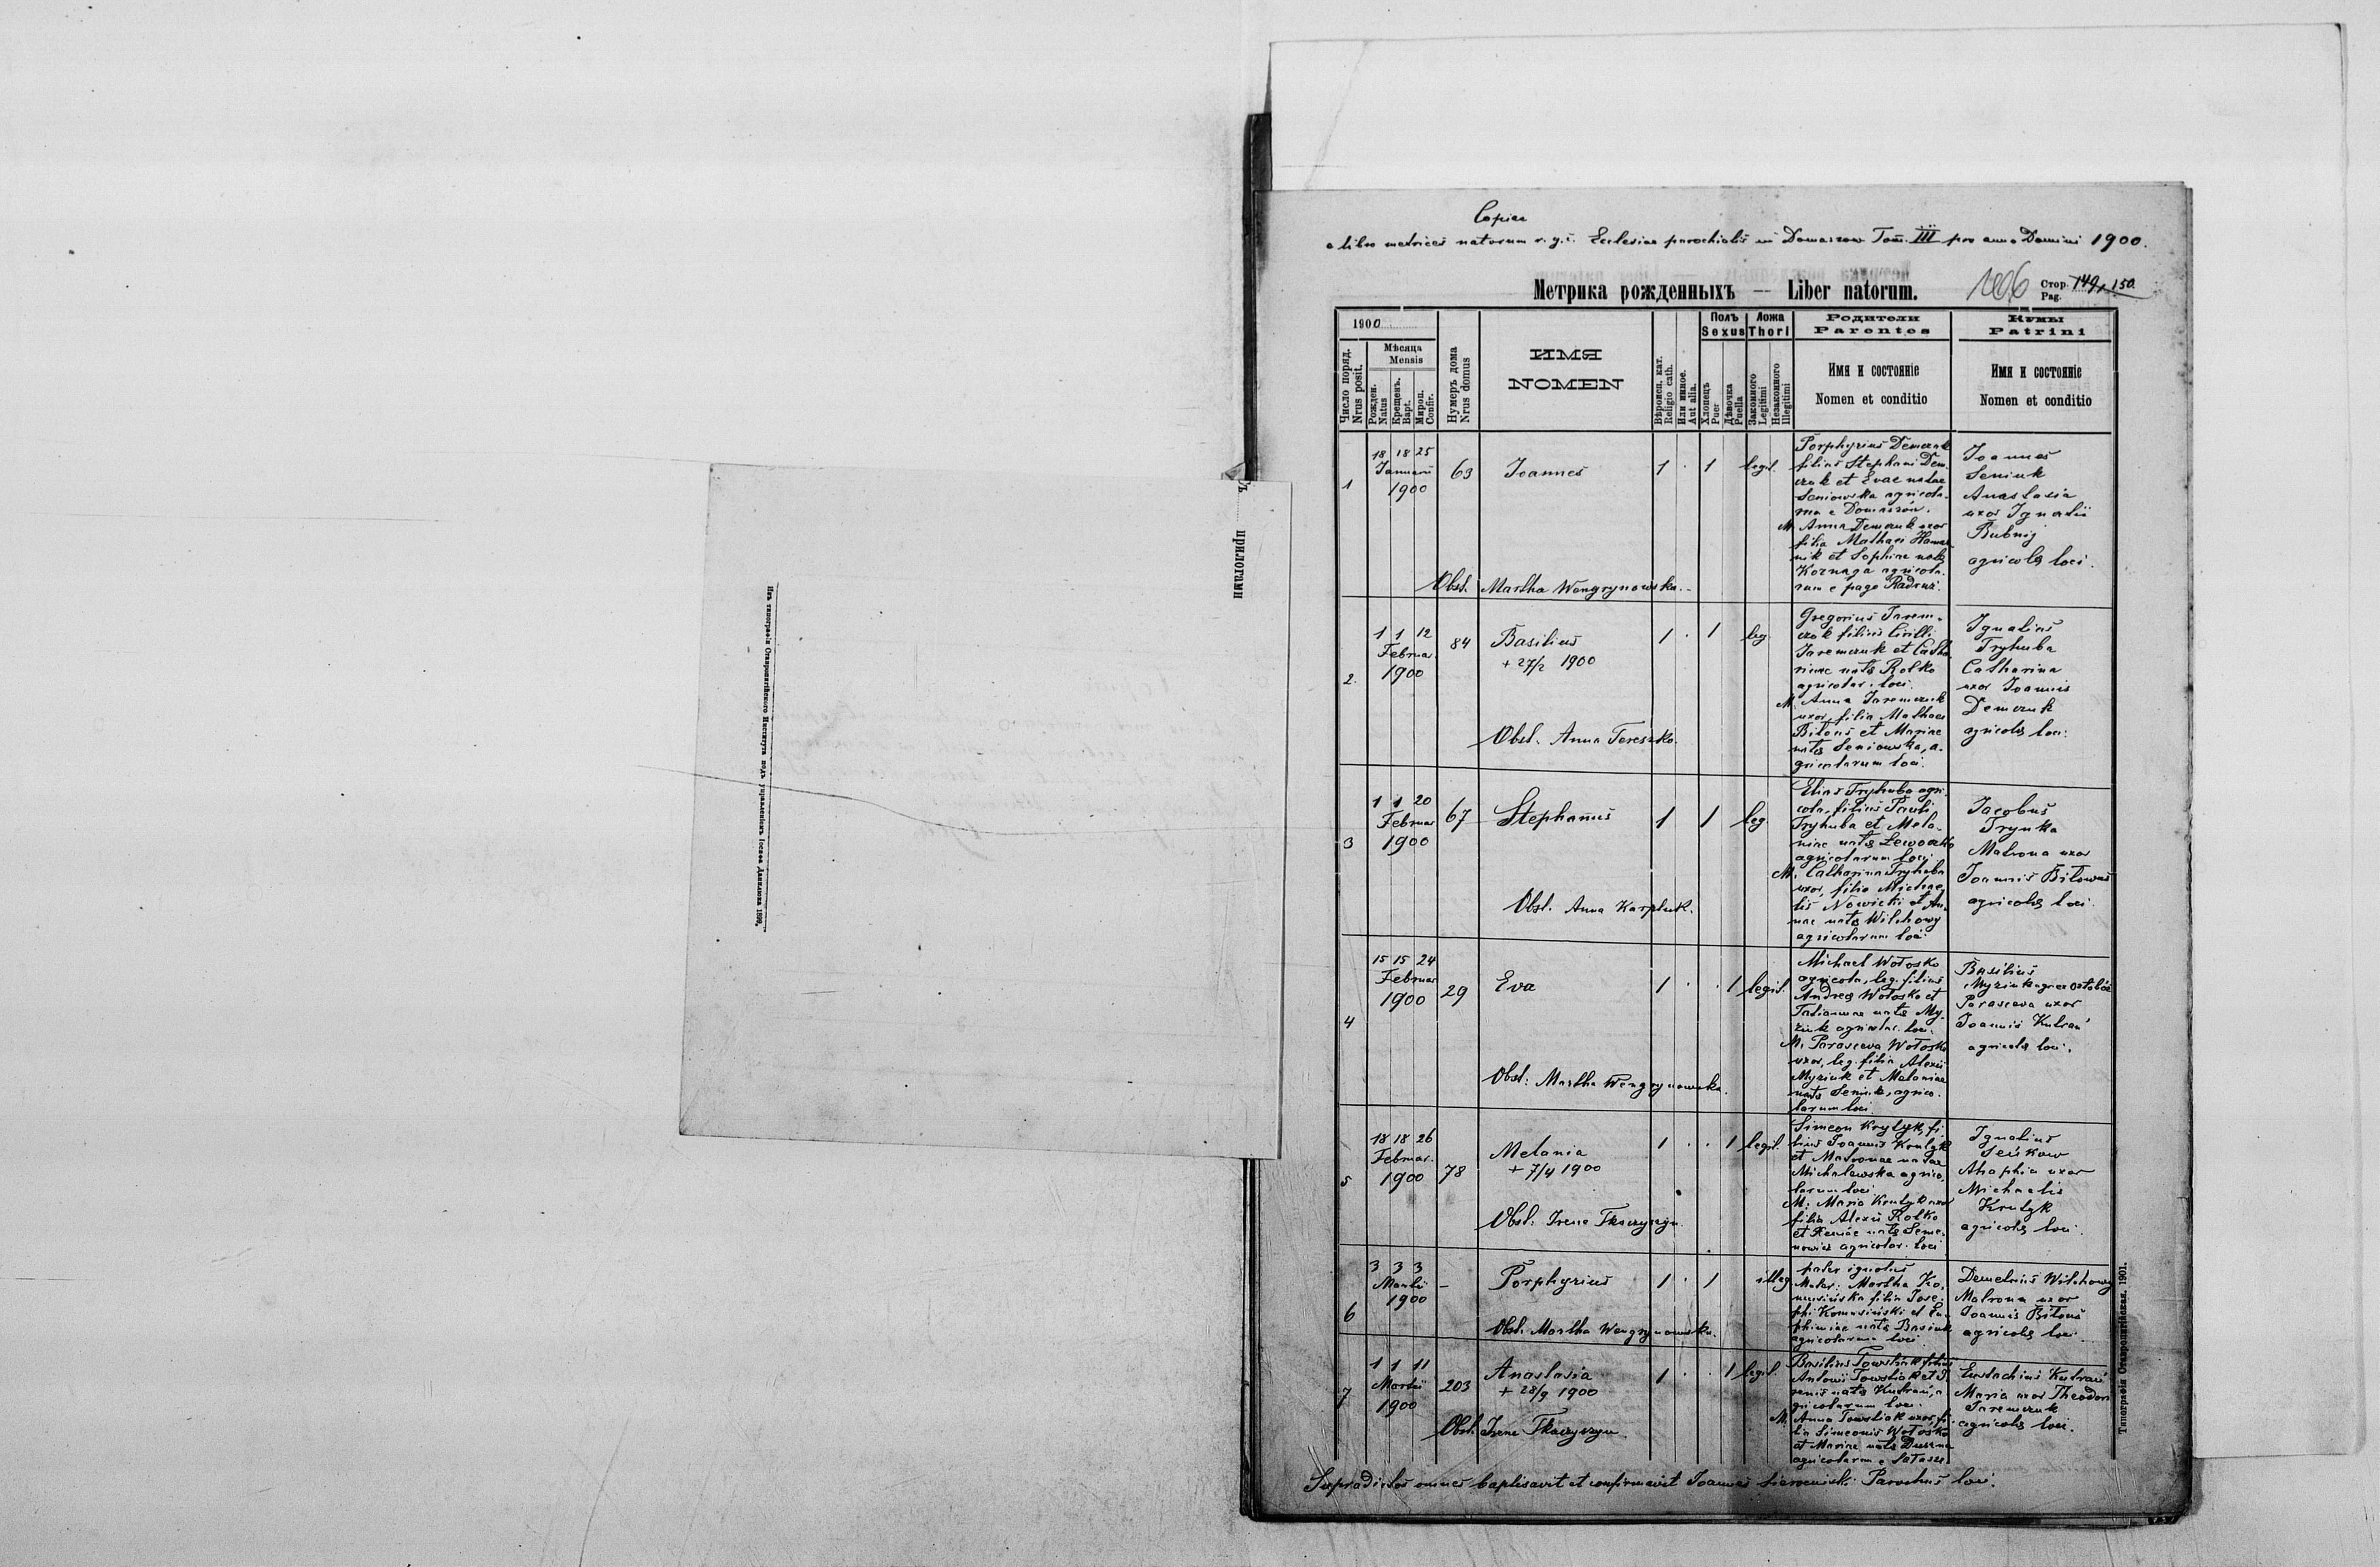 Copia
e libro metrices natorum r. g. c. Ecclesiae parochialis in Domaszow Tom. III pro anno Domini 1900.
Метрика рожденныхъ — Liber natorum.
Стор. Pag. 149, 150
1900
Число поряд. Nrus posit.
Мѣсяца Mensis
Рожден. Natus
Крещенъ. Bapt.
Мироп. Confir.
Нумеръ дома Nrus domus
ИМЯ
NOMEN
Вѣроисп. кат. Religio cath.
Или иное. Aut alia.
Полъ Sexus
Хлопецъ Puer
Дѣвочка Puella
Ложа Thori
Законного Legitimi
Незаконного Illegitimi
Родители
Parentes
Имя и состояніе
Nomen et conditio
Кумы
Patrini
Имя и состояніе
Nomen et conditio
1
18 18 25
Januarii
1900
63
Joannes
1 . 1 legit.
Porphyrius Demczuk
filius Stephani Dem-
czuk et Evae natae
Seniowska agricola-
rum e Domaszow.
M. Anna Demczuk uxor
filia Mathaei
et Sophiae natae
agricola-
rum e pago Radruż.
Joannes
Seniuk
Anastasia
uxor Ignatii
Bubnij
agricolae loci.
Obst. Martha Wengrynowska.
2.
1 1 12
Februar.
1900
84
Basilius
+ 27/2 1900
1 . 1 leg.
Gregorius Jarem-
czuk filius Cirilli
Jaremczuk et Catha-
rinae natae Rotko
agricolar. loci.
M. Anna Jaremczuk
uxor, filia Mathaei
Bilous et Mariae
natae Seniowska, a-
gricolarum loci.
Ignatius
Tryhuba
Catharina
uxor Joannis
Demczuk
agricolae loci.
Obst. Anna Tereszko.
3
1 1 20
Februar
1900
67
Stephanus
1 1 leg.
Elias Tryhuba agri-
cola, filius Pauli
Tryhuba et Mela-
niae natae
agricolarum loci
M. Catharina Tryhuba
uxor, filia Michae-
lis Nowicki et An-
nae natae Wilchowy
agricolarum loci.
Jacobus
Trynka
Matrona uxor
Joannis Bilowus
agricolae loci.
Obst. Anna Karpluk.
4
15 15 24
Februar
1900
29
Eva
1 . . 1 legit.
Michael Wołosko
agricola, leg. filius
Andreae Wołosko et
Tatiannae natae My-
ziuk agricolar. loci.
M. Parasceva Wołosko
uxor, leg. filia Alexii
Myziuk et Melaniae
natae Seniuk, agrico-
larum loci
Basilius
Myziuk
Parasceva uxor
Joannis Kutrań
agricolae loci.
Obst: Martha Wengrynowska.
5
18 18 26
Februar.
1900
78
Melania
+ 7/4 1900
1 . . 1 legit.
Simeon Krulyk, fi-
lius Joannis Krulyk
et Matronae natae
Michalewska agrico-
larum loci
M: Maria Krulyk uxor
filia Alexii Rotko
et Xeniae natae Seme-
nowicz agricolar. loci
Ignatius
Seńkow
Ahaphia uxor
Michaelis
Krulyk
agricolae loci.
Obst: Irena Tkaczyszyn.
6
3 3 3
Martii
1900
–
Porphyrius
1 . 1 illeg.
pater ignotus
Mater: Martha Ko-
musińska filia Jose-
phi Komusiński et Eu-
phimiae natae Basiuk
agricolarum loci
Demetrius Wilchowy
Matrona uxor
Joannis Bilous
agricolae loci.
Obst. Martha Wengrynowska.
7
1 1 11
Martii
1900
203
Anastasia
+ 28/9 1900
1 . . 1 legit.
Basilius Towstiak filius
Antonii Towstiak et I-
renis natae Kutrań, a-
gricolarum loci.
M. Anna Towstiak uxor, fi-
lia Simeonis Wołosko
et Mariae natae Duszna
agricolarum e
Eustachius Kutrań
Maria uxor Theodori
Jaremczuk
agricolae loci.
Obst. Irena Tkaczyszyn.
Supradictos omnes baptisavit et confirmavit Joannes Parochus loci.
Типографія Ставропигійская. 1901.
Изъ типографіи Ставропигійского Института подъ управленіемъ Іосифа Данилюка 1899.
прилогами